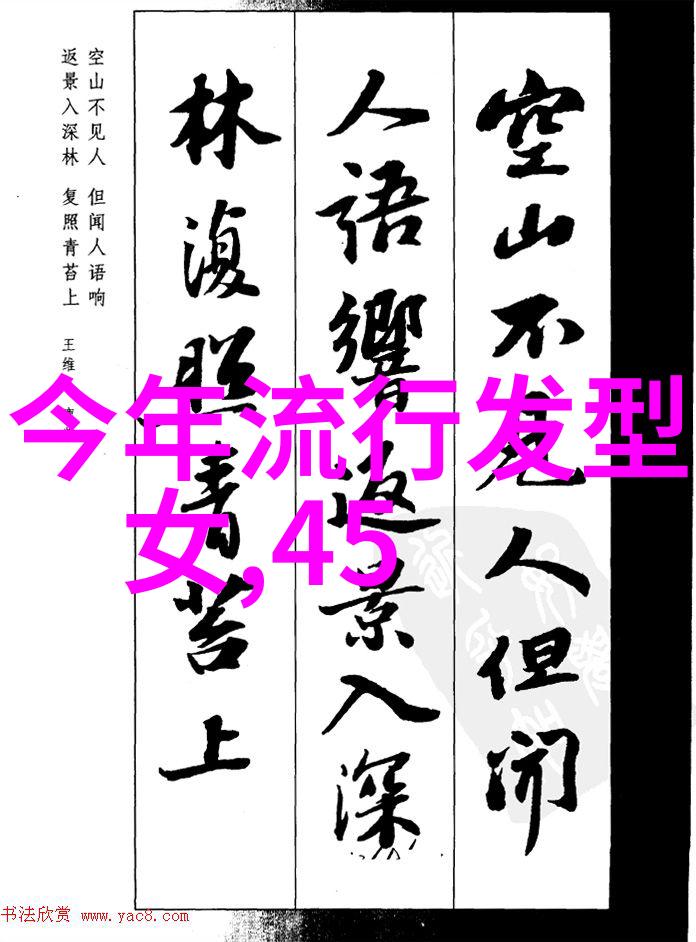 空山不见人但闻
人语響返景入深
林復照青苔上
空山不见人 但闻人语响
返景入深林 复照青苔上
王维
今年流行发型
女,45
书法欣赏 www.yac8.com